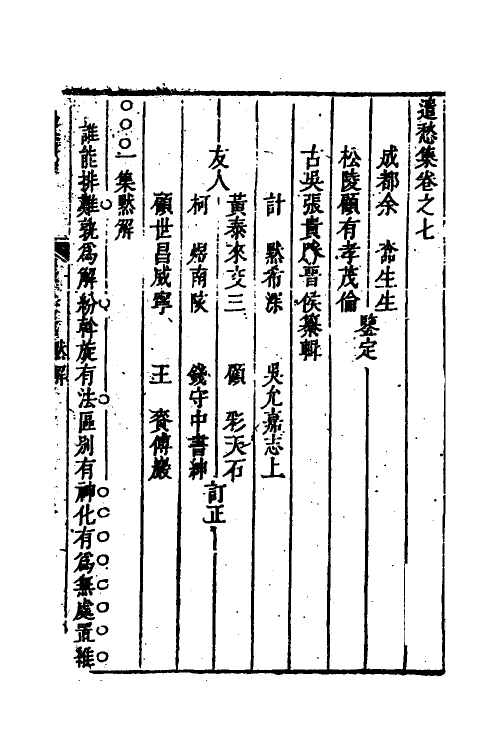 遣愁集卷之七
成都余　生生
松陵顧有孝茂倫
鑒定
古吳張貴勝晉侯纂輯
計　默希深　吳允嘉志上
友人
黃泰來交三　顧　彩天石
柯　煜南陔　錢守中書紳
訂正
顧世昌威寧　王　賚傅巖
一集默解
誰能排難孰為解紛斡旋有法區別有神化有為無處置雖